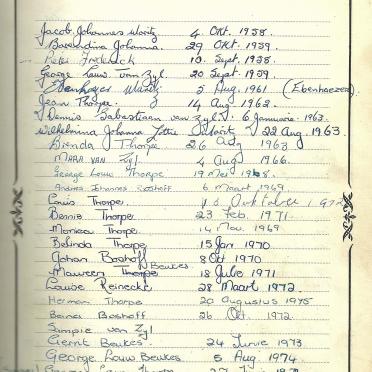 Jacob Johannes Moritz 4 Okt. 1958.
Barendina Johanna. 29 Okt. 1959.
Peter Frederick 10 Sept. 1958.
George Louw. van Zyl. 20 Sept. 1959.
Ebenhaezer Moritz 5 Aug. 1961 (Ebenhaezer)
Jean Thorpe. 14 Aug. 1962.
Dennis Sabastiaan van Zyl. 6 Januarie. 1963.
Wilhelmina Johanna 22 Aug. 1963.
Brenda Thorpe 26 Aug 1963
MARA VAN Zyl. 4 Aug 1966.
George Louw Thorpe 19 Mei 1968.
Andrea Johannes Boshoff 6 Maart 1969.
Louis Thorpe.
Dennis Thorpe. 23 Feb. 1971.
Monica Thorpe. 14 Nov. 1969
Belinda Thorpe 15 Jan 1970
Johan Boshoff 8 Okt 1970
Maureen Thorpe Beukes. 18 Julie 1971
Louise Reinecke 28 Maart 1972.
Herman Thorpe 20 Augustus 1975
Boshoff 26 Okt. 1972.
Sampie van Zyl
Gerrit Beukes. 24 Junie 1973
George Louw Beukes. 5 Aug. 1974.